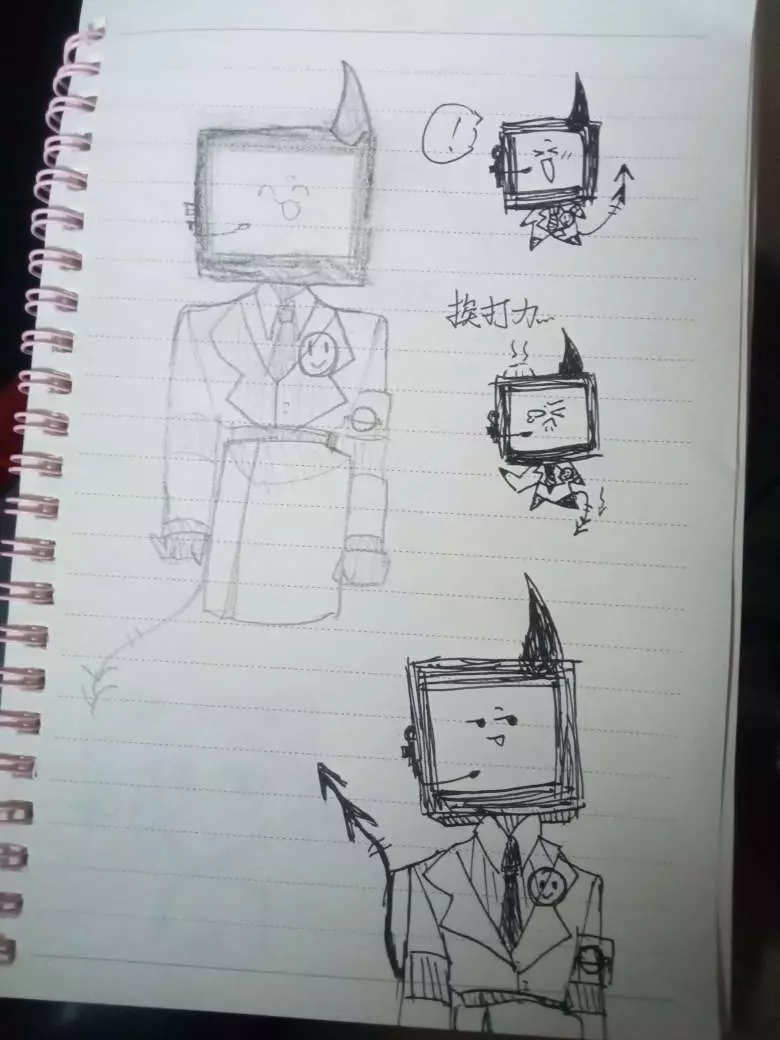 !
挨打力...